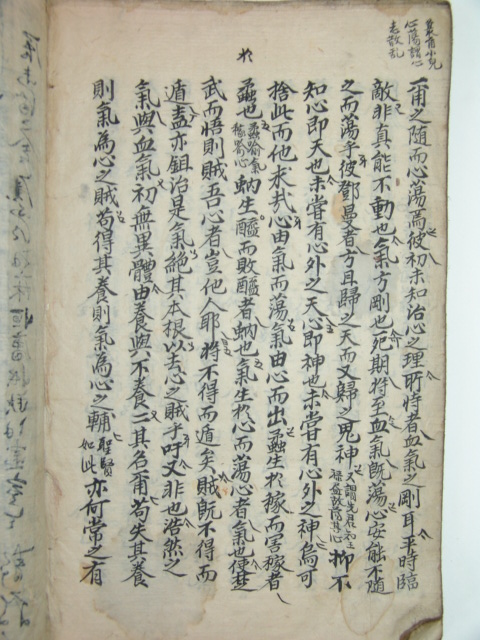 心蕩謂心
志散乱
於
爾之随而心蕩焉彼初未知治心之理所恃者血氣之剛耳平時臨
敵非真能不動也氣方剛也死期将至血氣既蕩心安能不随
之而蕩乎彼鄧曼者方且歸之天而又歸之鬼神又謂先君知之祿盡故蕩其心抑不
知心即天也未嘗有心外之天心即神也未嘗有心外之神烏可
捨此而他求哉心由氣而蕩氣由心而出蟊生於稼而害稼者
蟊也蟊喻氣稼喻心蚋生醯而敗醯者蚋也氣生於心而蕩心者氣也使楚
武而悟則賊吾心者豈他人耶将不得而遁矣賊既不得而
遁盖亦鉏治是氣絶其本根以去心之賊乎吁又非也浩然之
氣與血氣初無異體由養與不養二其名爾苟失其養
則氣為心之賊苟得其養則氣為心之輔聖賢如此亦何常之有